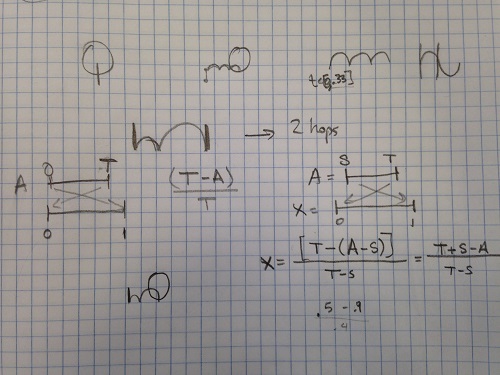 t<[0,.33]
→ 2 hops
A
0 T
0 1
(T-A)
T
S T
A =
X =
0 1
X = [T-(A-S)] / T-S = T+S-A / T-S
.5 - .9
.4